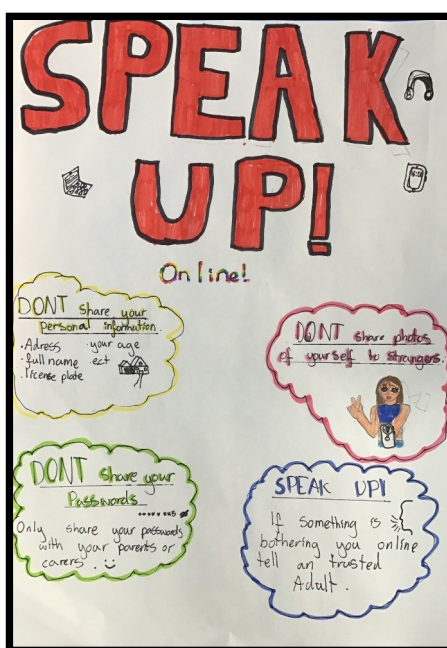 SPEAK
UP!
Online!
DONT share your
personal information.
• Adress
• your age
• full name
• ect
• license plate
DONT share photos
of yourself to strangers.
DONT share your
Passwords
Only share your passwords
with your parents or
carers.
SPEAK UP!
If something is
bothering you online
tell an trusted
Adult.